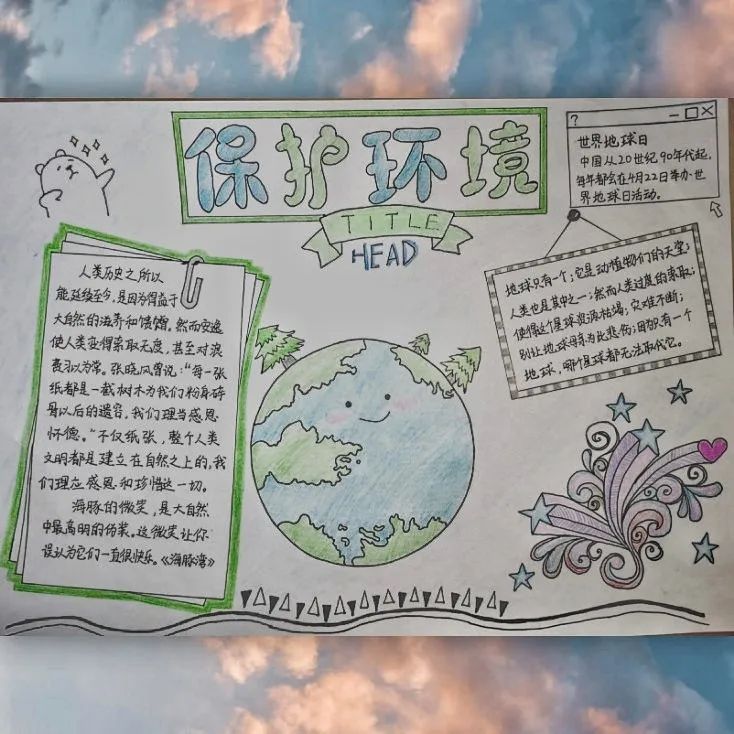 保护环境
TITLE
HEAD
?
世界地球日
中国从20世纪90年代起,
每年都会在4月22日举办世
界地球日活动。
人类历史之所以
能延续至今,是因为得益于
大自然的滋养和馈赠。然而安逸
使人类变得索取无度,甚至对浪
费习以为常。张晓风曾说:“每一张
纸都是一截树木为我们粉身碎
骨以后的遗容,我们理当感恩
怀德。”不仅纸张,整个人类
文明都是建立在自然之上的,我
们理应感恩和珍惜这一切。
海豚的微笑,是大自然
中最高明的伪装。这微笑让你
误认为它们一直很快乐。《海豚湾》
地球只有一个;它是动植物们的天堂;
人类也是其中之一;然而人类过度的索取;
使得这个星球资源枯竭;灾难不断;
别让地球母亲为此悲伤;因为只有一个
地球,哪个星球都无法取代它。